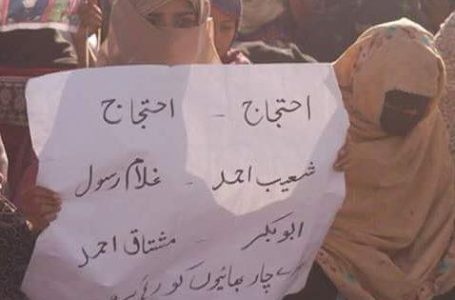 احتجاج - احتجاج
شعیب احمد - غلام رسول
ابوبکر - مشتاق احمد
چار بھائیوں کو